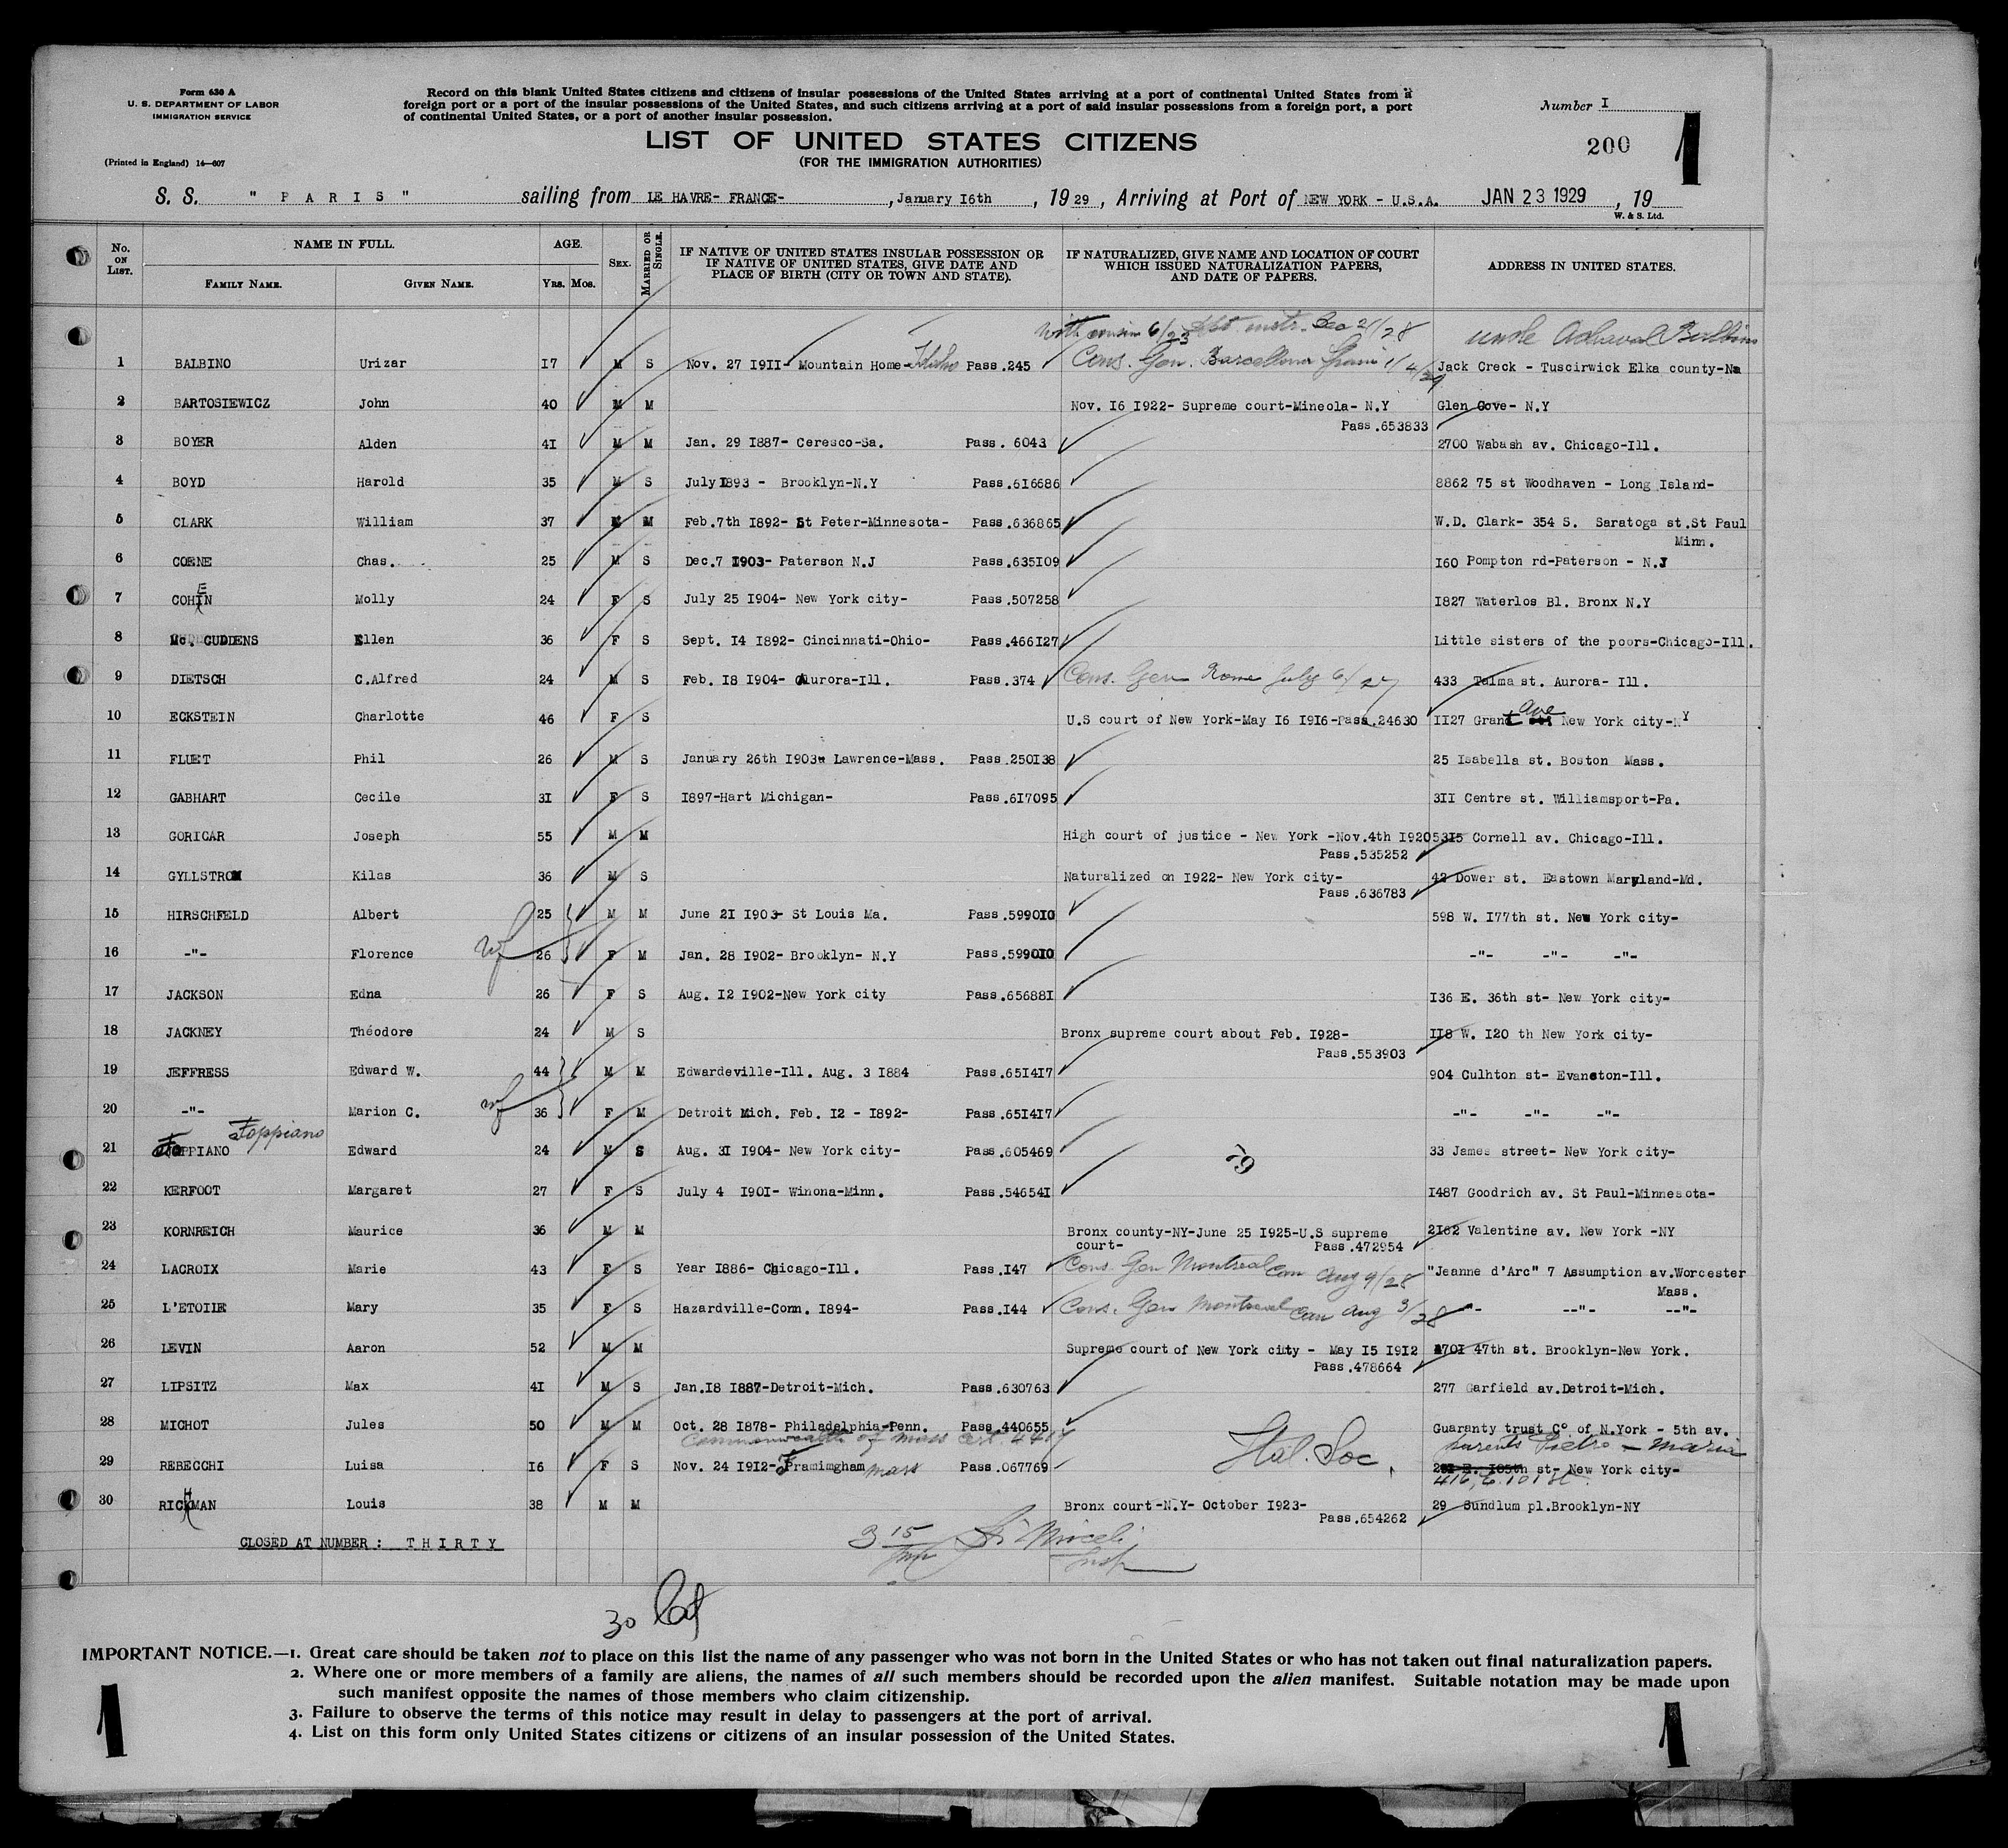 Form 630 A
U. S. DEPARTMENT OF LABOR
IMMIGRATION SERVICE
(Printed in England) 14—607
Record on this blank United States citizens and citizens of insular possessions of the United States arriving at a port of continental United States from a
foreign port or a port of the insular possessions of the United States, and such citizens arriving at a port of said insular possessions from a foreign port, a port
of continental United States, or a port of another insular possession.
LIST OF UNITED STATES CITIZENS
(FOR THE IMMIGRATION AUTHORITIES)
Number I
200
1
S. S. " P A R I S " sailing from LE HAVRE- FRANCE- , January I6th , 19 29 , Arriving at Port of NEW YORK - U.S.A. JAN 23 1929 , 19
W. & S. Ltd.
No. ON LIST. NAME IN FULL. AGE. SEX. MARRIED OR SINGLE. IF NATIVE OF UNITED STATES INSULAR POSSESSION OR IF NATIVE OF UNITED STATES, GIVE DATE AND PLACE OF BIRTH (CITY OR TOWN AND STATE). IF NATURALIZED, GIVE NAME AND LOCATION OF COURT WHICH ISSUED NATURALIZATION PAPERS, AND DATE OF PAPERS. ADDRESS IN UNITED STATES.
FAMILY NAME. GIVEN NAME. YRS. MOS.
With cousin 6/23 Dec 21/28 uncle
1 BALBINO Urizar I7 M S Nov. 27 I9II- Mountain Home-Idaho Pass.245 Cons. Gen. Barcellona Spain 1/4/29 Jack Creck - Tuscirwick Elka county-Na
2 BARTOSIEWICZ John 40 M M Nov. I6 I922- Supreme court-Mineola- N.Y Glen Cove- N.Y
Pass.653833
3 BOYER Alden 4I M M Jan. 29 I887- Ceresco-Sa. Pass. 6043 2700 Wabash av. Chicago-Ill.
4 BOYD Harold 35 M S July I893 - Brooklyn-N.Y Pass.6I6686 8862 75 st Woodhaven - Long Island-
5 CLARK William 37 M M Feb.7th I892- St Peter-Minnesota- Pass.636865 W.D. Clark- 354 S. Saratoga st.St Paul
Minn.
6 CORNE Chas. 25 M S Dec.7 I903- Paterson N.J Pass.635I09 I60 Pompton rd-Paterson - N.J
7 COHEN Molly 24 F S July 25 I904- New York city- Pass.507258 I827 Waterlos Bl. Bronx N.Y
8 Mc. CUDDENS Ellen 36 F S Sept. I4 I892- Cincinnati-Ohio- Pass.466I27 Little sisters of the poors-Chicago-Ill.
9 DIETSCH C.Alfred 24 M S Feb. I8 I904- Aurora-Ill. Pass.374 Cons. Gen Rome July 6/27 433 Talma st. Aurora- Ill.
10 ECKSTEIN Charlotte 46 F S U.S court of New York-May I6 I9I6-Pass.24630 II27 Grant Ave New York city-NY
11 FLUET Phil 26 M S January 26th I903- Lawrence-Mass. Pass.250I38 25 Isabella st. Boston Mass.
12 GABHART Cecile 3I F S I897-Hart Michigan- Pass.6I7095 3II Centre st. Williamsport-Pa.
13 GORICAR Joseph 55 M M High court of justice - New York -Nov.4th I920 53I5 Cornell av. Chicago-Ill.
Pass.535252
14 GYLLSTROM Kilas 36 M S Naturalized on I922- New York city- 42 Dower st. Eastown Maryland-Md.
Pass.636783
15 HIRSCHFELD Albert 25 M M June 2I I903- St Louis Ma. Pass.5990I0 598 W. I77th st. New York city-
16 -"- Florence wf 26 F M Jan. 28 I902- Brooklyn- N.Y Pass.5990I0 -"- -"- -"-
17 JACKSON Edna 26 F S Aug. I2 I902-New York city Pass.65688I I36 E. 36th st- New York city-
18 JACKNEY Théodore 24 M S Bronx supreme court about Feb. I928- II8 W. I20 th New York city-
Pass.553903
19 JEFFRESS Edward W. 44 M M Edwardeville-Ill. Aug. 3 I884 Pass.65I4I7 904 Culhton st- Evanston-Ill.
20 -"- Marion C. wf 36 F M Detroit Mich. Feb. I2 - I892- Pass.65I4I7 -"- -"- -"-
Foppiano
21 FOPPIANO Edward 24 M S Aug. 3I I904- New York city- Pass.605469 33 James street- New York city-
22 KERFOOT Margaret 27 F S July 4 I90I- Winona-Minn. Pass.54654I I487 Goodrich av. St Paul-Minnesota-
23 KORNREICH Maurice 36 M M Bronx county-NY-June 25 I925-U.S supreme 2I82 Valentine av. New York -NY
court- Pass.472954
24 LACROIX Marie 43 F S Year I886- Chicago-Ill. Pass.I47 Cons. Gen Montreal Can Aug 9/28 "Jeanne d'Arc" 7 Assumption av.Worcester
Mass.
25 L'ETOILE Mary 35 F S Hazardville-Conn. I894- Pass.I44 Cons. Gen Montreal Can Aug 3/28 -"- --"- --"-
26 LEVIN Aaron 52 M M Supreme court of New York city - May I5 I9I2 I70I 47th st. Brooklyn-New York.
Pass.478664
27 LIPSITZ Max 4I M S Jan.I8 I887-Detroit-Mich. Pass.630763 277 Garfield av.Detroit-Mich.
28 MICHOT Jules 50 M M Oct. 28 I878- Philadelphia-Penn. Pass.440655 Guaranty trust C° of N.York - 5th av.
Commonwealth of Mass Ital. Soc. parents Pietro - Maria
29 REBECCHI Luisa I6 F S Nov. 24 I9I2- Framimgham mass Pass.067769 st- New York city-
416, E. 101 st.
30 RICHMAN Louis 38 M M Bronx court-N.Y- October I923- 29 Sundlum pl.Brooklyn-NY
Pass.654262
CLOSED AT NUMBER : T H I R T Y
3 15
Insp
30
IMPORTANT NOTICE.—1. Great care should be taken not to place on this list the name of any passenger who was not born in the United States or who has not taken out final naturalization papers.
2. Where one or more members of a family are aliens, the names of all such members should be recorded upon the alien manifest. Suitable notation may be made upon
such manifest opposite the names of those members who claim citizenship.
3. Failure to observe the terms of this notice may result in delay to passengers at the port of arrival.
4. List on this form only United States citizens or citizens of an insular possession of the United States.
1
1